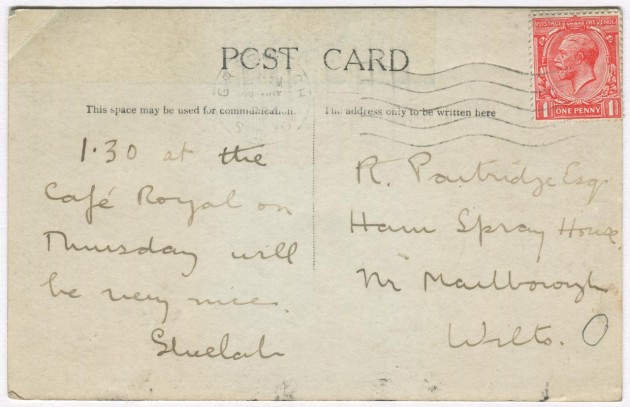 POSTAGE REVENUE
1 ONE PENNY 1
POST CARD
This space may be used for communication.
The address only to be written here
1.30 at the
Café Royal on
Thursday will
be very nice.
Sheelah
R. Partridge Esq.
Ham Spray House
Nr Marlborough
Wilts.